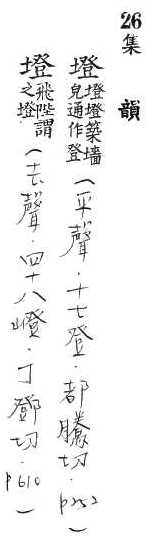 26集 韻
墱墱墱築墻皃通作登(平聲.十七登.都騰切.p252)
墱飛陛謂之墱.(去聲.四十八嶝.丁鄧切.p610)